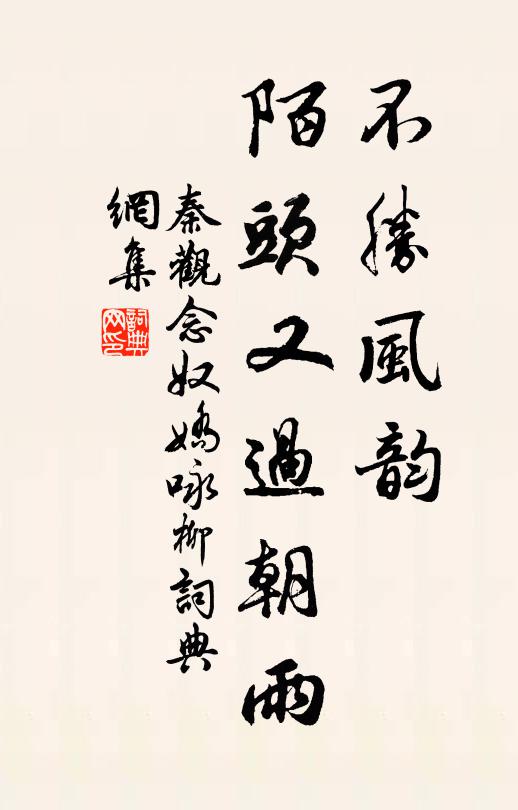 不勝風韵
陌頭又過朝雨
秦觀念奴嬌咏柳詞典
網集
詞典
网印